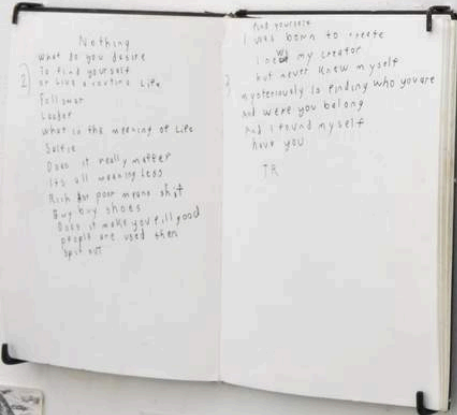 Nothing
What do you desire
To find yourself
or Live a routine Life
2)
Follower
Leader
what is the meaning of Life
Selfie
Does it really matter
its all meaning Less
Rich poor means shit
Buy buy shoes
Does it make you fill good
people are used then
Spit out
find yourself
I was born to create
I new my creator
but never knew myself
mysteriously is finding who you are
And were you belong
And I found myself
have you
TR